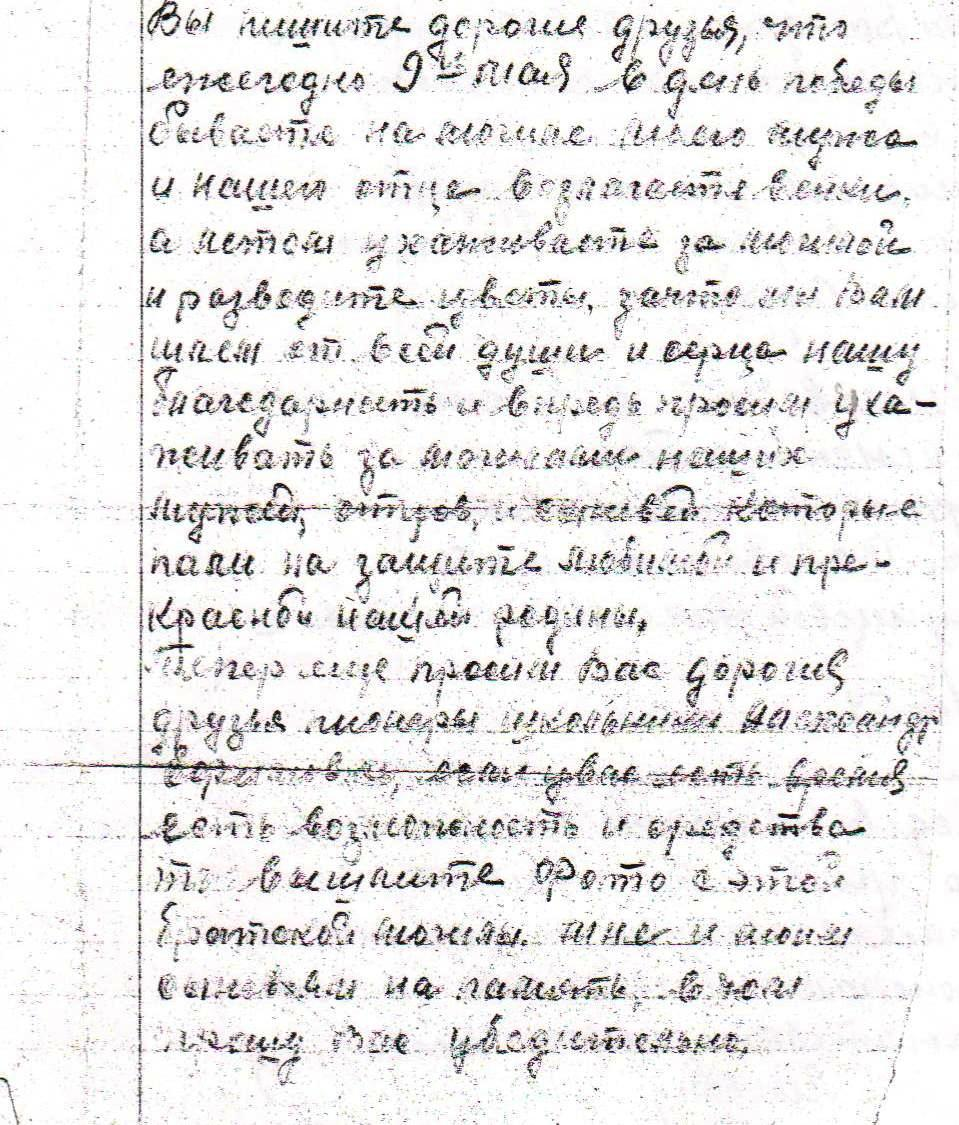 Вы пишите дорогие друзья, что
ежегодно 9го мая в день победы
бываете на могиле моего мужа
и нашего отца возлагаете венки.
а летом ухаживаете за могилой
и разводите цветы, за что мы Вам
шлем от всей души и серца нашу
благодарность и впредь просим уха-
живать за могилами наших
мужей, отцов, и сыновей которые
пали на защите любимой и пре-
красной нашей родины.
Тепер еще просим Вас дорогие
друзья пионеры школьники
если у вас есть время
есть возможность и средства
то вышлите Фото с этой
братской могилы. мне и моим
сыновьям на память, в чом
прошу Вас убедительно.